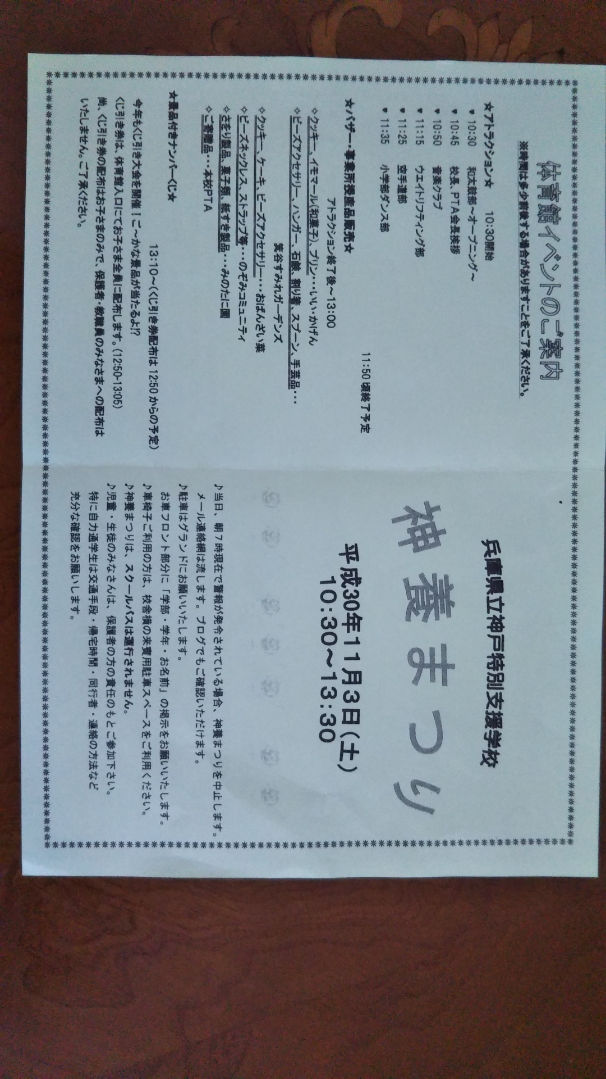 体育館イベントのご案内
※時間は多少前後する場合がありますことをご了承ください。
☆アトラクション☆ 10:30開始
♥ 10:30 和太鼓部～オープニング～
♥ 10:45 校長、PTA会長挨拶
♥ 10:50 音楽クラブ
♥ 11:15 ウエイトリフティング部
♥ 11:25 空手道部
♥ 11:35 小学部ダンス部
11:50頃終了予定
☆バザー・事業所授産品販売☆
アトラクション終了後～13:00
◇クッキー、イモマール(和菓子)、プリン・・・いい・かげん
◇ビーズアクセサリー、ハンガー、石鹸、割り箸、スプーン、手芸品・・・
箕谷すみれガーデンズ
◇クッキー、ケーキ、ビーズアクセサリー・・・おばんざい菜
◇ビーズネックレス、ストラップ等・・・のぞみコミュニティ
◇さをり製品、菓子類、紙すき製品・・・みのたに園
◇ご寄贈品・・・本校PTA
☆景品付きナンバーくじ☆
13:10～(くじ引き券配布は12:50からの予定)
今年もくじ引き大会を開催！ごーかな景品が当たるよ!?
くじ引き券は、体育館入口にてお子さま全員に配布します。(12:50-13:05)
尚、くじ引き券の配布はお子さまのみで、保護者・教職員のみなさまへの配布は
いたしません。ご了承ください。
兵庫県立神戸特別支援学校
神養まつり
平成30年11月3日(土)
10:30～13:30
♪当日、朝7時現在で警報が発令されている場合、神養まつりを中止します。
メール連絡網は流します。ブログでもご確認いただけます。
♪駐車はグランドにお願いいたします。
お車フロント部分に「学部・学年・お名前」の掲示をお願いいたします。
♪車椅子ご利用の方は、校舎横の来賓用駐車スペースをご利用ください。
♪神養まつりは、スクールバスは運行されません。
♪児童・生徒のみなさんは、保護者の方の責任のもとご参加下さい。
特に自力通学生は交通手段・帰宅時間・同行者・連絡の方法など
充分な確認をお願いします。